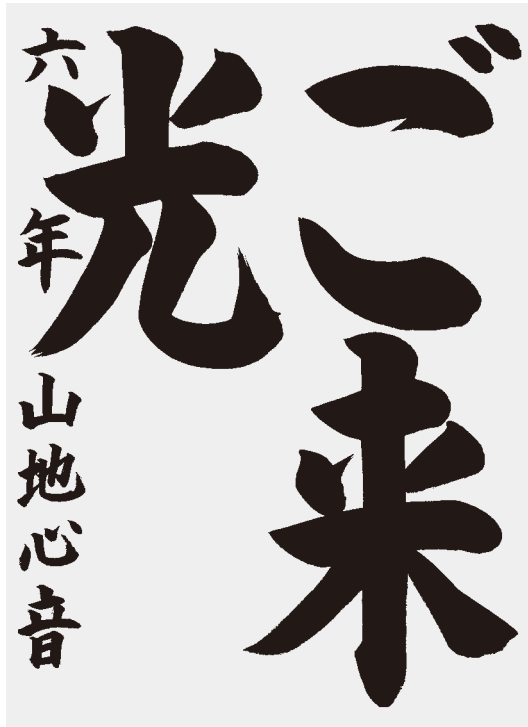 ご来
光
六年 山地心音